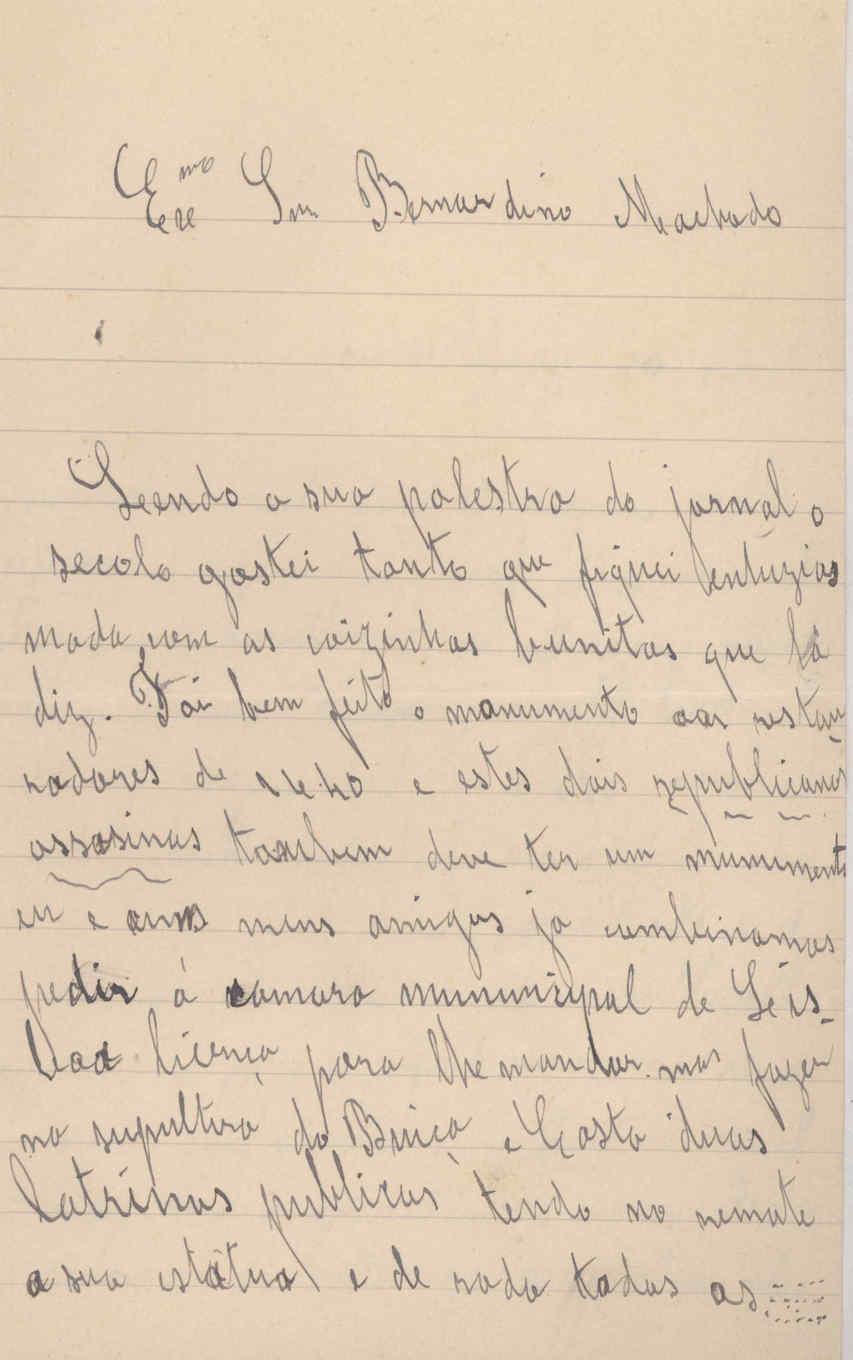 Exmo Snr Bernardino Machado
Leendo a sua palestra do jornal o
seculo gostei tanto que fiquei entuzias
mada com as coizinhas bunitas que lá
diz. Foi bem feito o manumento aos restau
radores de e estes dois republicanos
assasinus tambem deve ter um mumimento
eu e meus amigus ja cumbinamos
pedir á camara mununizipal de Léis-
boa licença para lhe mandar-mos fazer
na supultura do Buiça e Costa duas
latrinas publicas tendo no remate
a sua estátua e de roda todas as